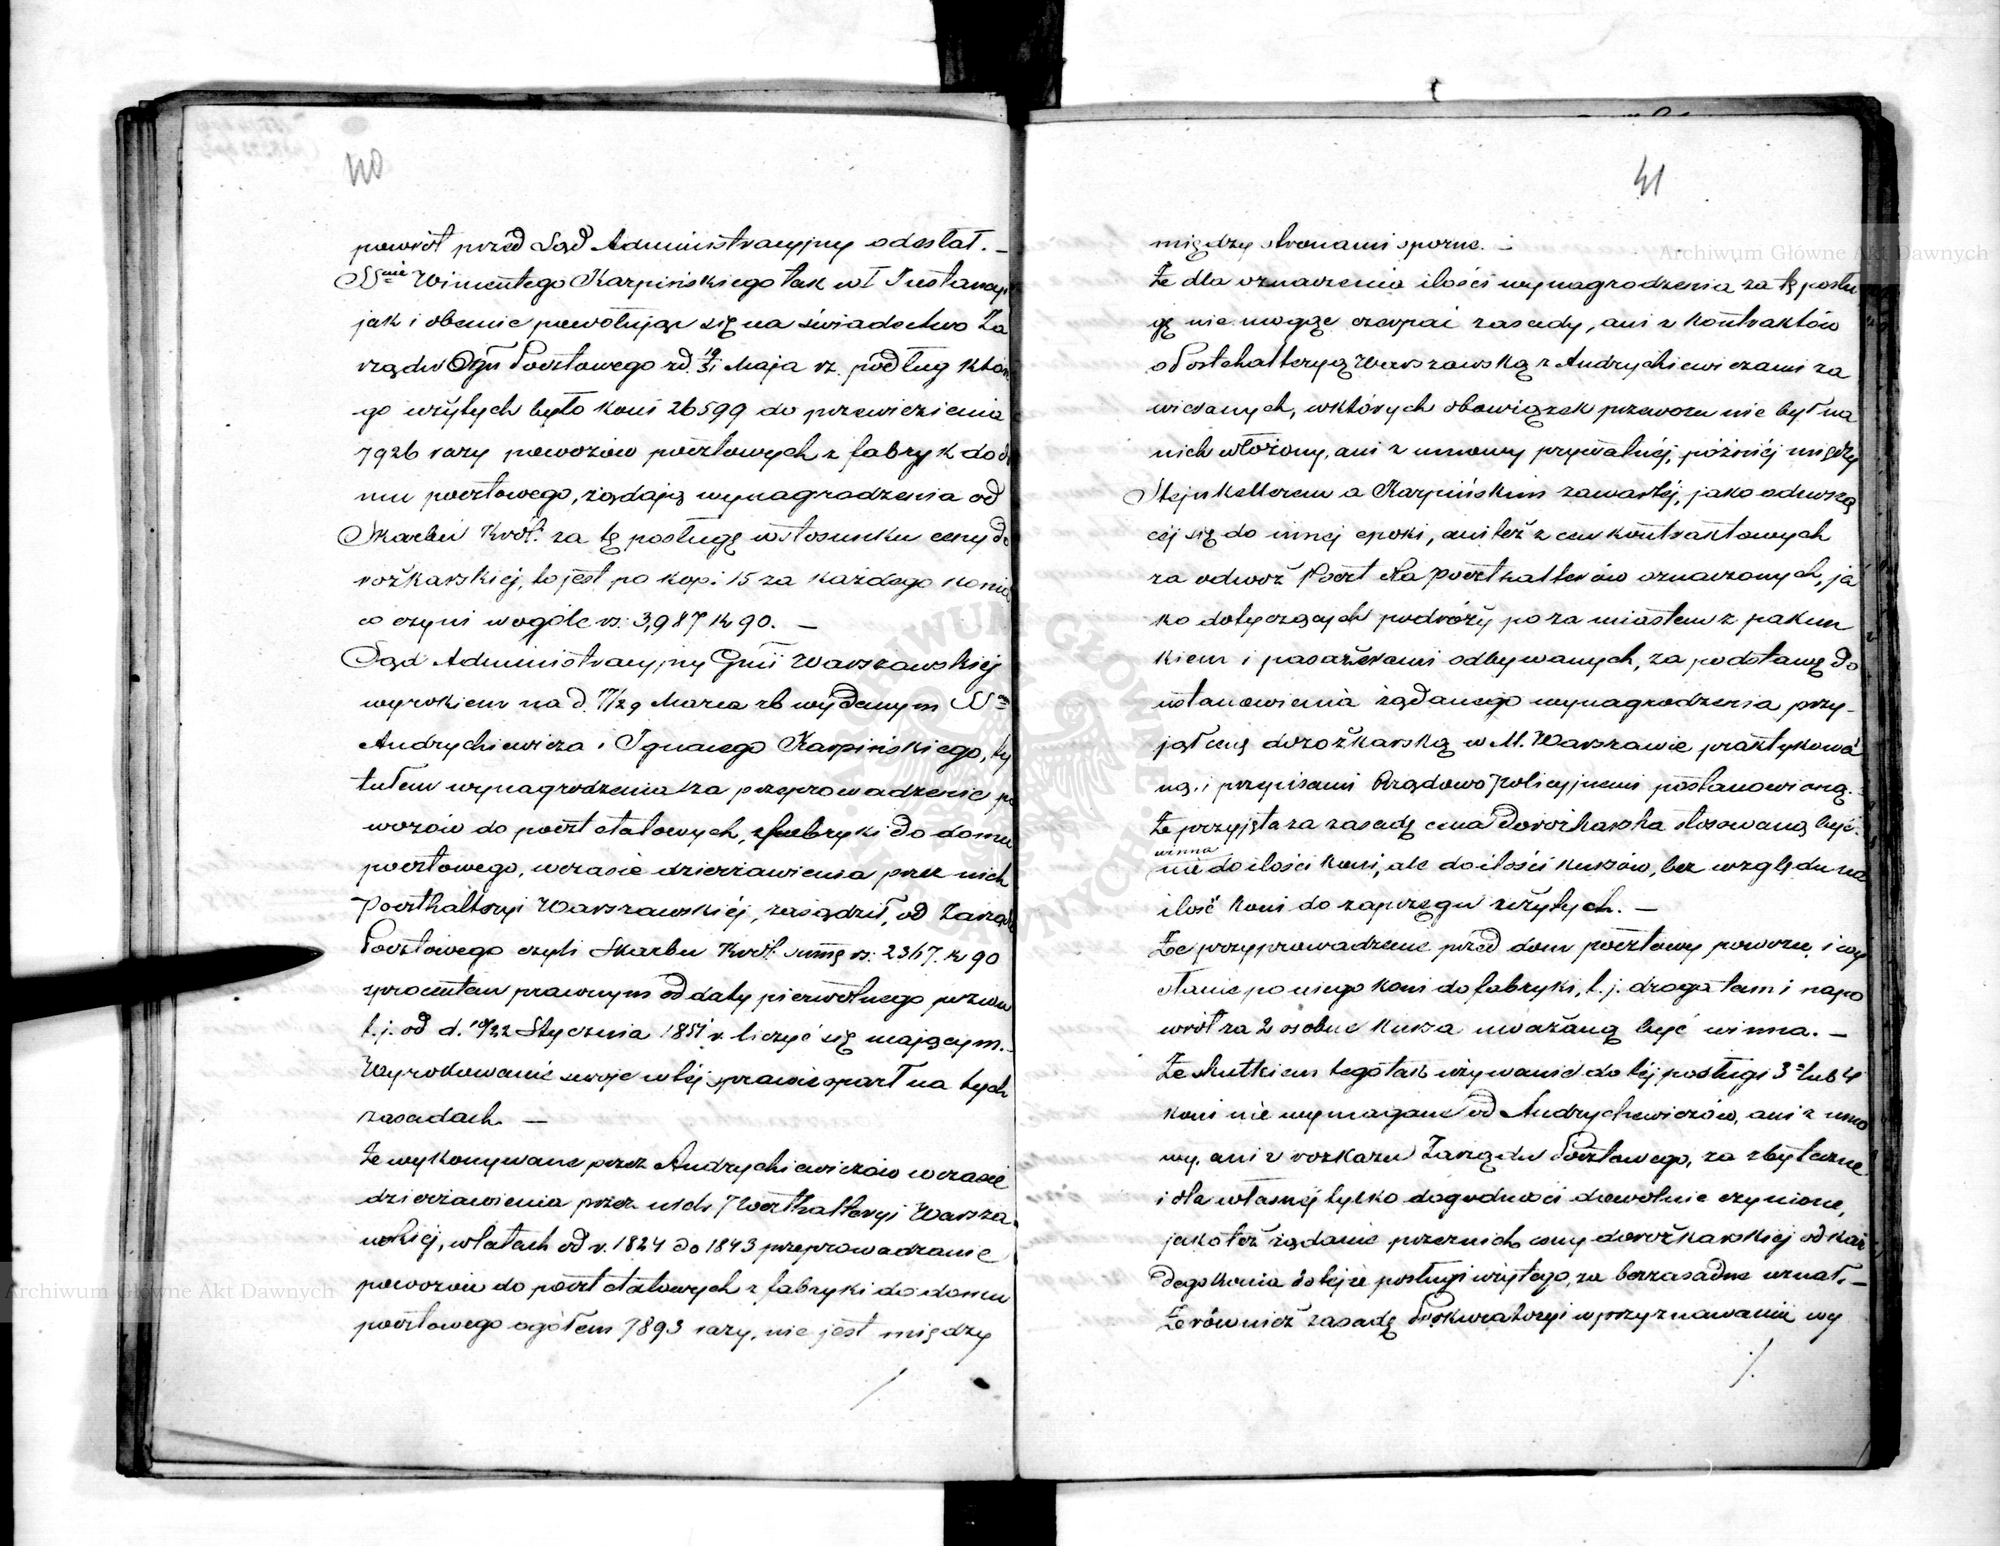 40
powrót przed Sąd Administracyjny odesłał. —
SSnie Wincentego Karpińskiego tak w I Instancyi
jak i obecnie powołując się na świadectwo Za
rządu Okgu Pocztowego z d. 19/31 Maja rz. podług któn
go użytych było koni 26599 do przewiezienia
7926 razy powozów pocztowych z fabryk do do
mu pocztowego, żądają wynagrodzenia od
Skarbu Król. za tę posługę w stosunku ceny do
rożkarskiéj, to jest po kop. 15 za każdego konia
co czyni w ogóle rs. 3,987 k 90. —
Sąd Administracyjny Gnii Warszawskiej
wyrokiem na d. 17/29 Marca rb wydanym SSom
Andrychiewicza i Ignacego Karpińskiego, ty
tułem wynagrodzenia za przeprowadzenie po
wozów do poczt etatowych, z fabryki do domu
pocztowego, w czasie dzierżawienia przez nich
Poczthalteryi Warszawskiéj, zasądził, od Zarządu
Pocztowego czyli Skarbu Król. summę rs. 2367. k 90
z procentem prawnym od daty pierwotnego pozwu
t. j. od d. 10/22 Stycznia 1851 r. liczyć się mającym. —
Wyrokowanie swoje w téj sprawie oparł na tych
zasadach. —
Że wykonywane przez Andrychiewiczów w czasie
dzierżawienia przez nich Poczthalteryi Warsza
wskiéj, w latach od r. 1824 do 1843 przeprowadzanie
powozów do poczt etatowych z fabryki do domu
pocztowego ogółem 7893 razy, nie jest między
/.
41
między stronami sporne. —
Że dla oznaczenia ilości wynagrodzenia za tę posłu
gę nie mogąc czerpać zasady, ani z kontraktów
o Poczthalteryą Warszawską z Andrychiewiczami za
wieranych, w których obowiązek przewozu nie był na
nich włożony, ani z umowy prywatnéj, późniéj między
Stejnkellerem a Karpińskim zawartéj, jako odnoszą
céj się do innej epoki, ani też z cen kontraktowych
za odwóz Poczt dla poczthalterów oznaczonych, ja
ko dotyczących podróży po za miastem z pakun
kiem i pasażerami odbywanych, za podstawę do
ustanowienia żądanego wynagrodzenia przy-
jął cenę dorożkarską w M. Warszawie praktykowa
ną, i przepisami Rządowo policyjnemi postanowioną.
Że przyjęta za zasadę cena dorożkarska stosowaną być
winna
nie do ilości koni, ale do ilości kursów, bez względu na
ilość koni do zaprzęgu użytych. —
Że przyprowadzenie przed dom pocztowy powozu, i wy
słanie po niego koni do fabryki, t. j. droga tam i napo
wrót za 2 osobne kursa uważaną być winna. —
Że skutkiem tego tak używanie do téj posługi 3ch lub 4
koni nie wymagane od Andrychewiczów, ani z umo
wy, ani z rozkazu Zarządu Pocztowego, za zbyteczne
i dla własnéj tylko dogodności dowolnie czynione,
jako też żądanie przez nich ceny dorożkarskiej od każ
dego konia do tejże posługi użytego, za bezzasadne uznał. —
Że również zasadę Prokuratoryi w przyznawaniu wy
/.
Archiwum Główne Akt Dawnych
Archiwum Główne Akt Dawnych
ARCHIWUM GŁÓWNE AKT DAWNYCH